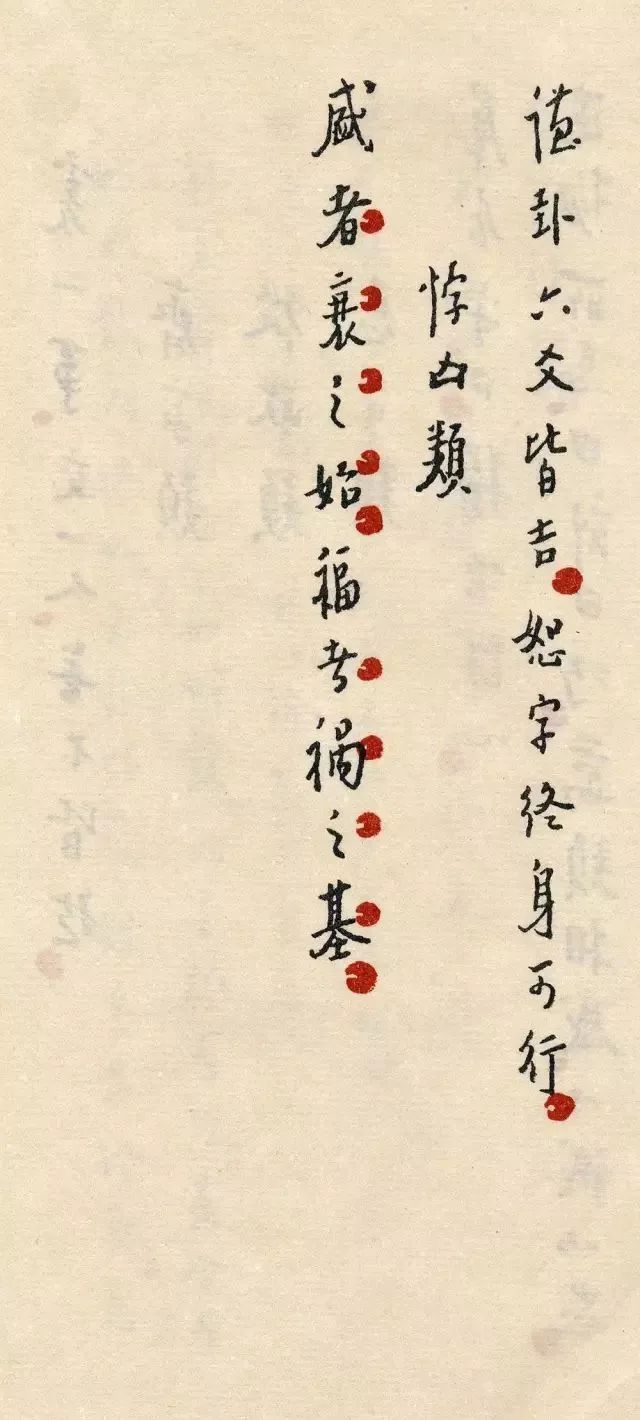 謙卦六爻皆吉恕字終身可行
悖凶類
盛者衰之始福者禍之基